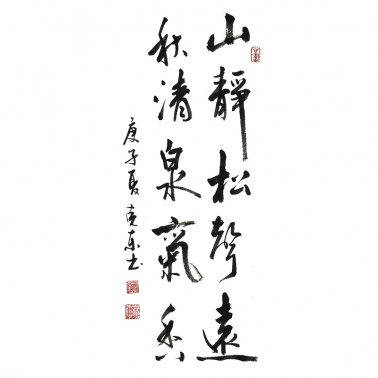 山靜松聲遠
秋清泉氣香
庚子夏克東书